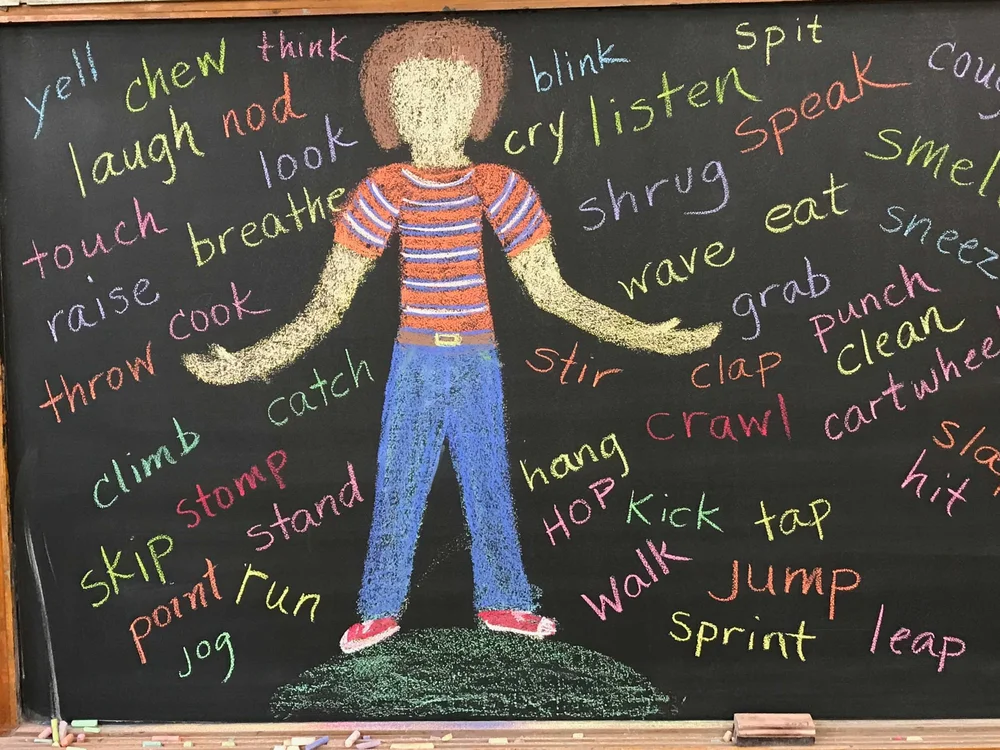 yell
chew
think
laugh
nod
look
touch
breathe
raise
cook
throw
catch
climb
stomp
stand
skip
point
run
jog
blink
spit
coug
cry
listen
speak
smel
shrug
eat
sneez
wave
grab
punch
clean
stir
clap
cartwhee
crawl
hang
HOP
Kick
tap
hit
Walk
Jump
Sprint
leap